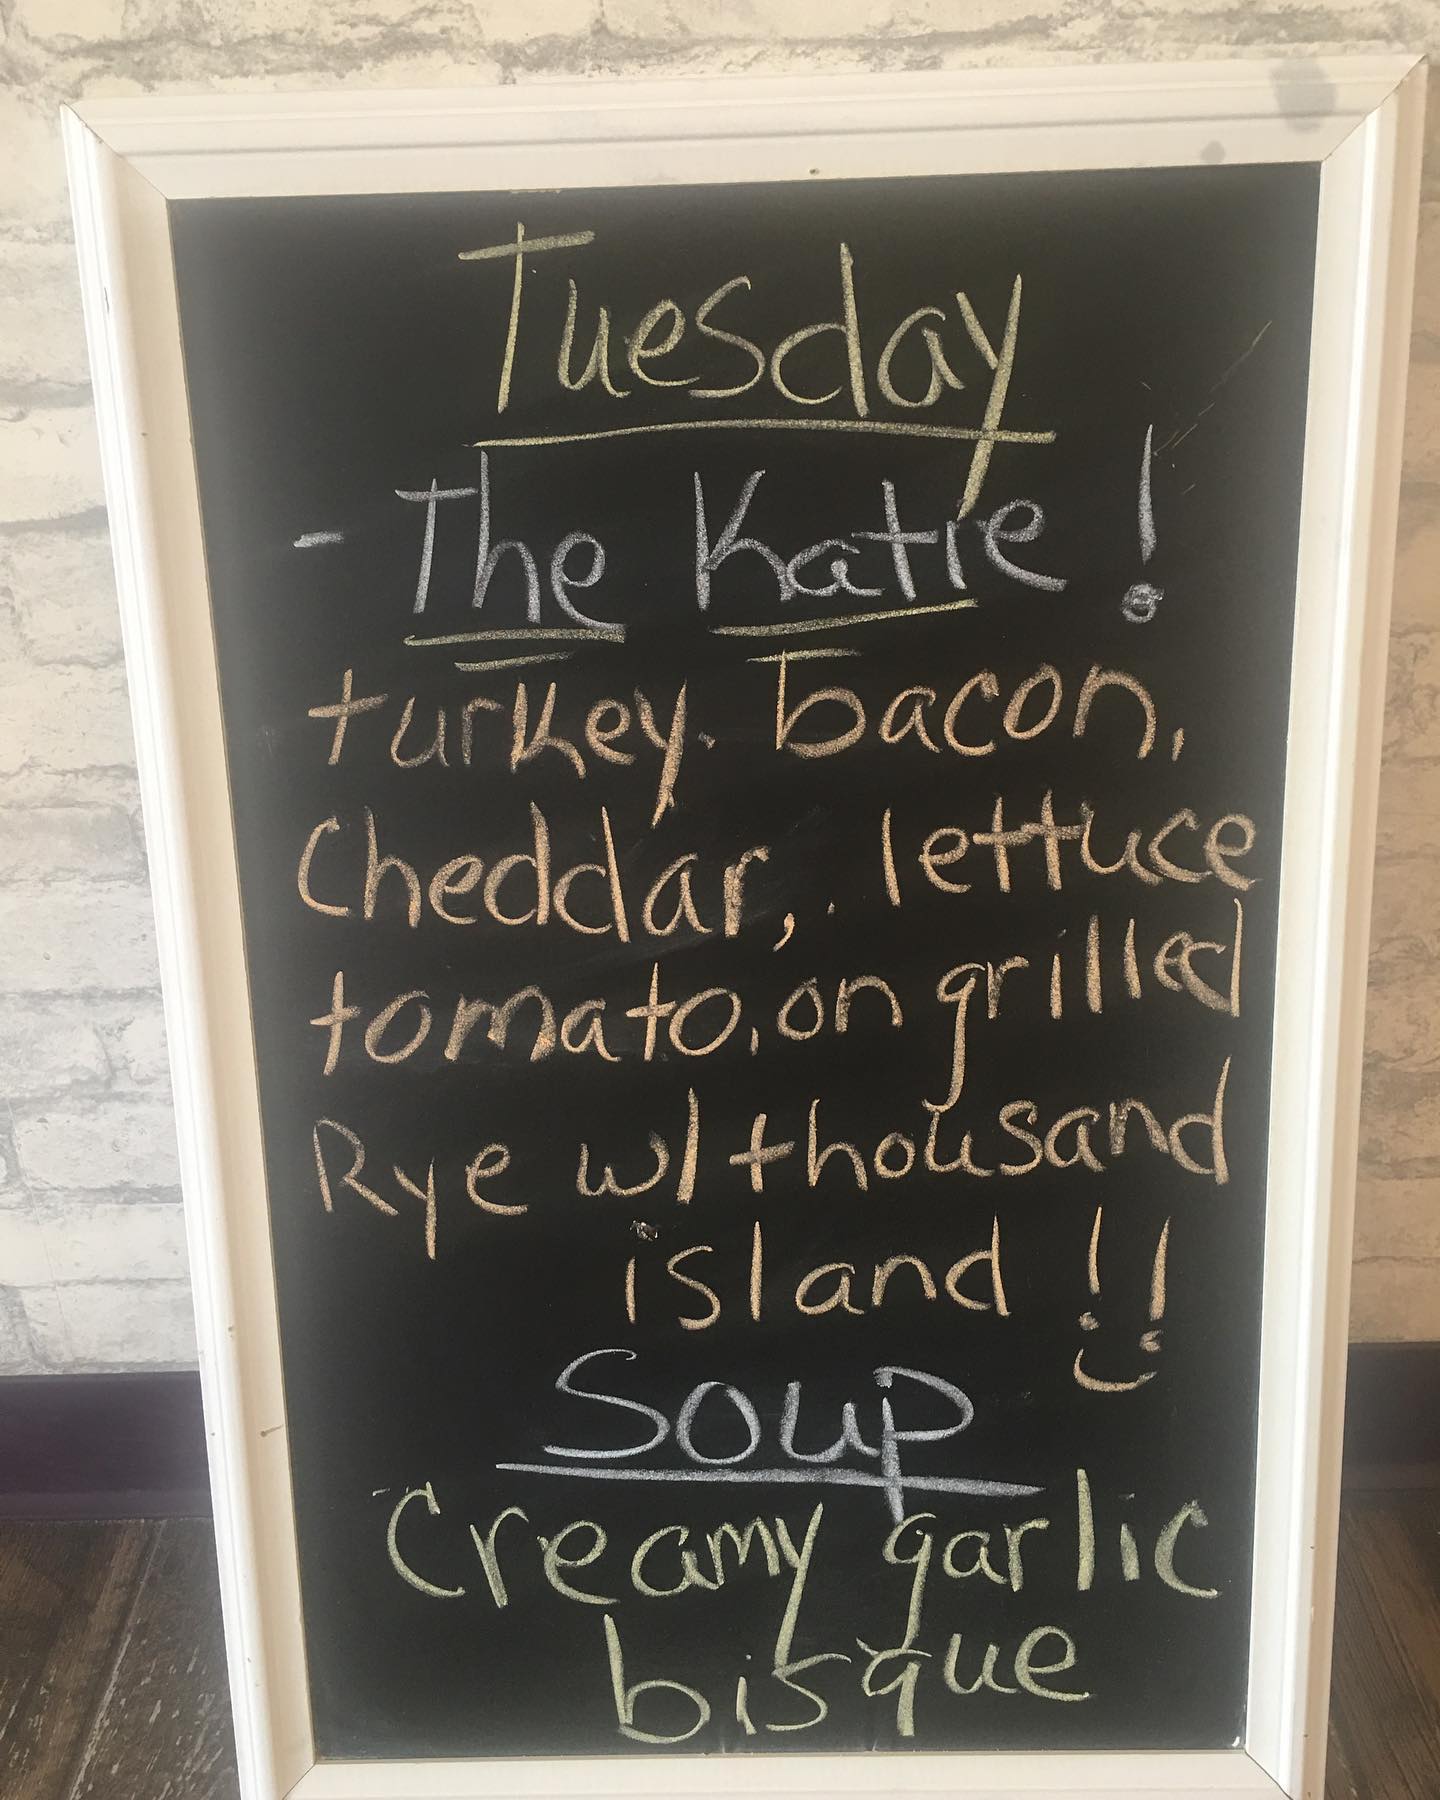 Tuesday
- The Katie!
turkey. bacon,
Cheddar, . lettuce
tomato, on grilled
Rye w/ thousand
island !!
Soup
Creamy garlic
bisque